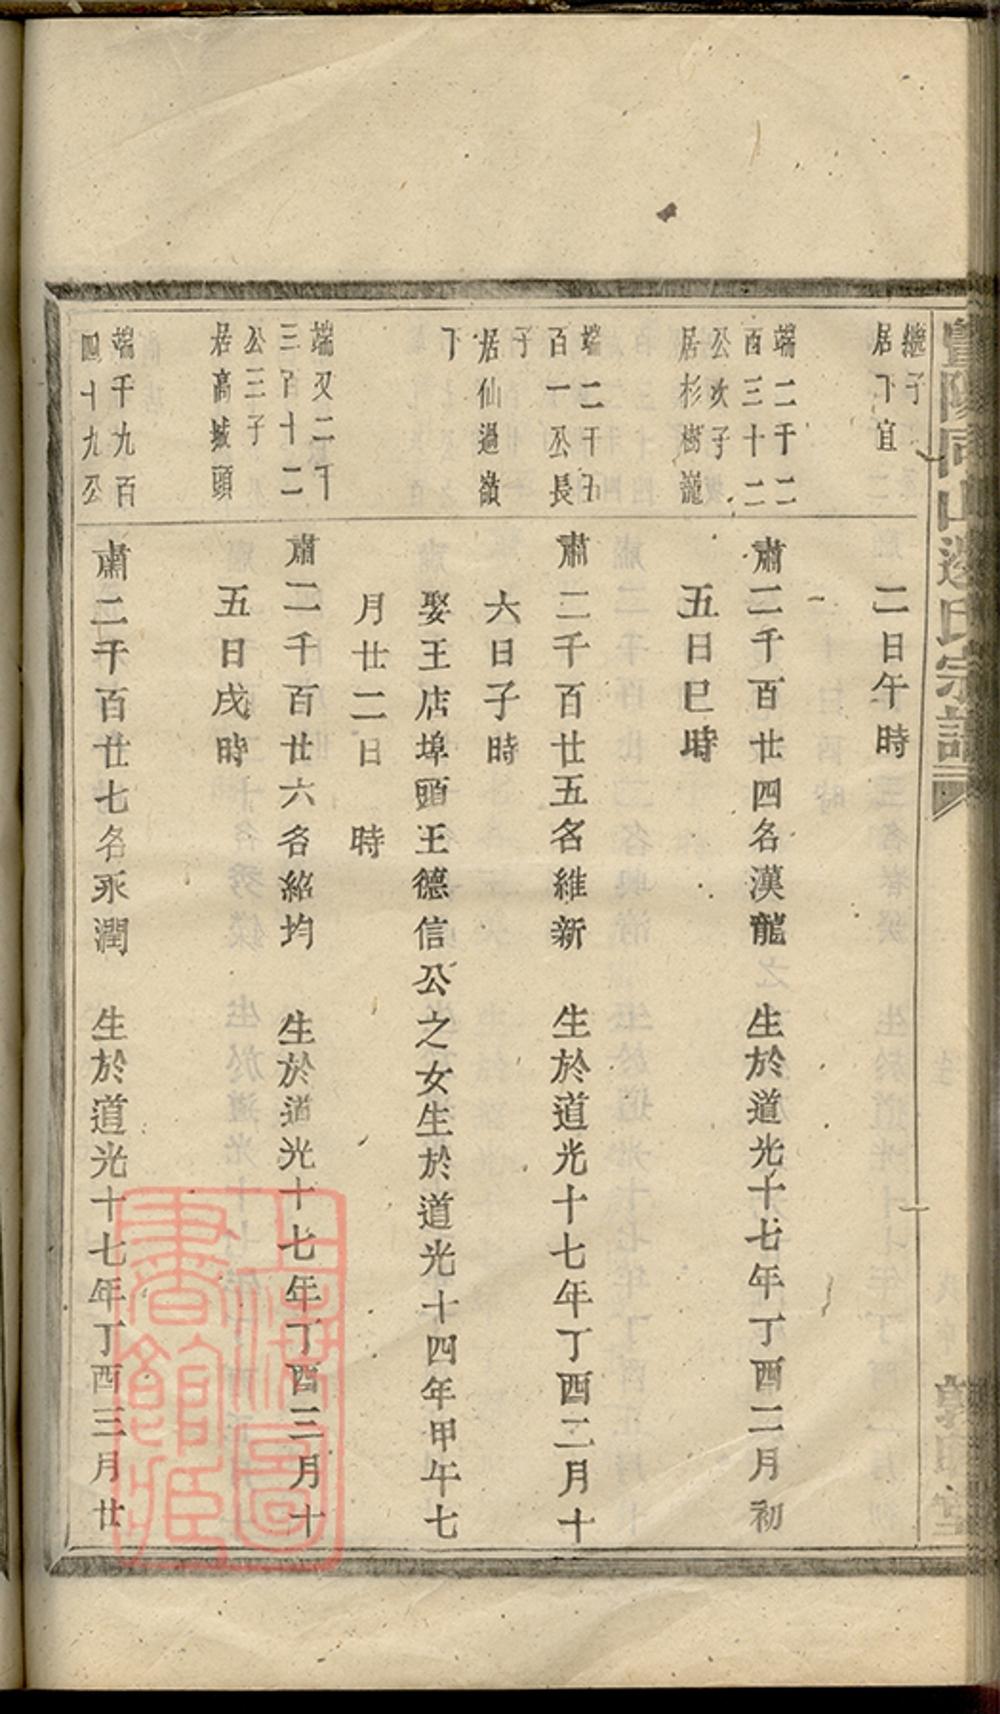 暨陽同山邊氏宗譜
繼子
居下宜
二日午時
端二千二
百三十二
公次子
居杉樹巃
肅二千百廿四名漢龍 生於道光十七年丁酉二月初
五日巳時
端二千五
百一公長
子
居仙過嶺
下
肅二千百廿五名維新 生於道光十七年丁酉二月十
六日子時
娶王店埠頭王德信公之女生於道光十四年甲午七
月廿二日 時
端又二千
三百十二
公三子
居高城頭
肅二千百廿六名紹均 生於道光十七年丁酉三月十
五日戌時
端千九百
四十九公
肅二千百廿七名永潤 生於道光十七年丁酉三月廿
上海圖書館藏